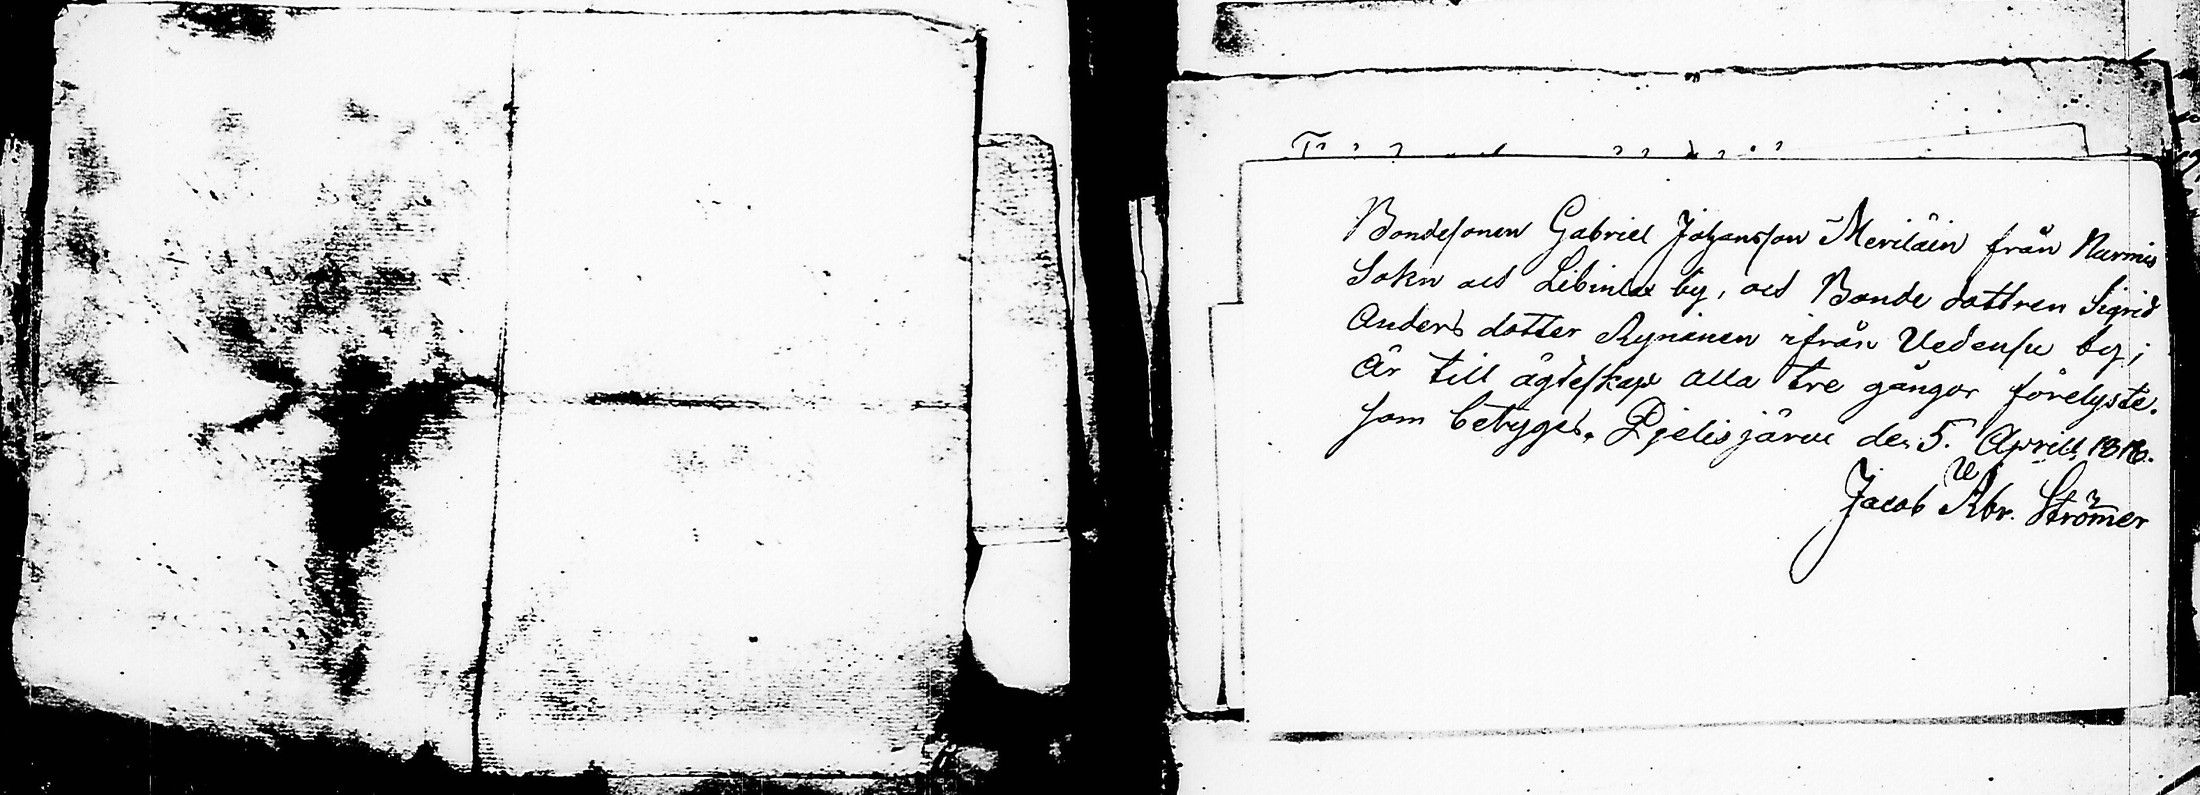 Bondesonen Gabriel Johansson Meriläin från Nurmis
Sokn och Libinlax by, och Bonde dottren Sigrid
Anders dotter Rynänen ifrån Uedensu by;
Är till ägteskap alla tre gångor förelyste.
som betyges. Pjelisjärvi den 5. Aprill 1818.
Jacob Abr. Strömer